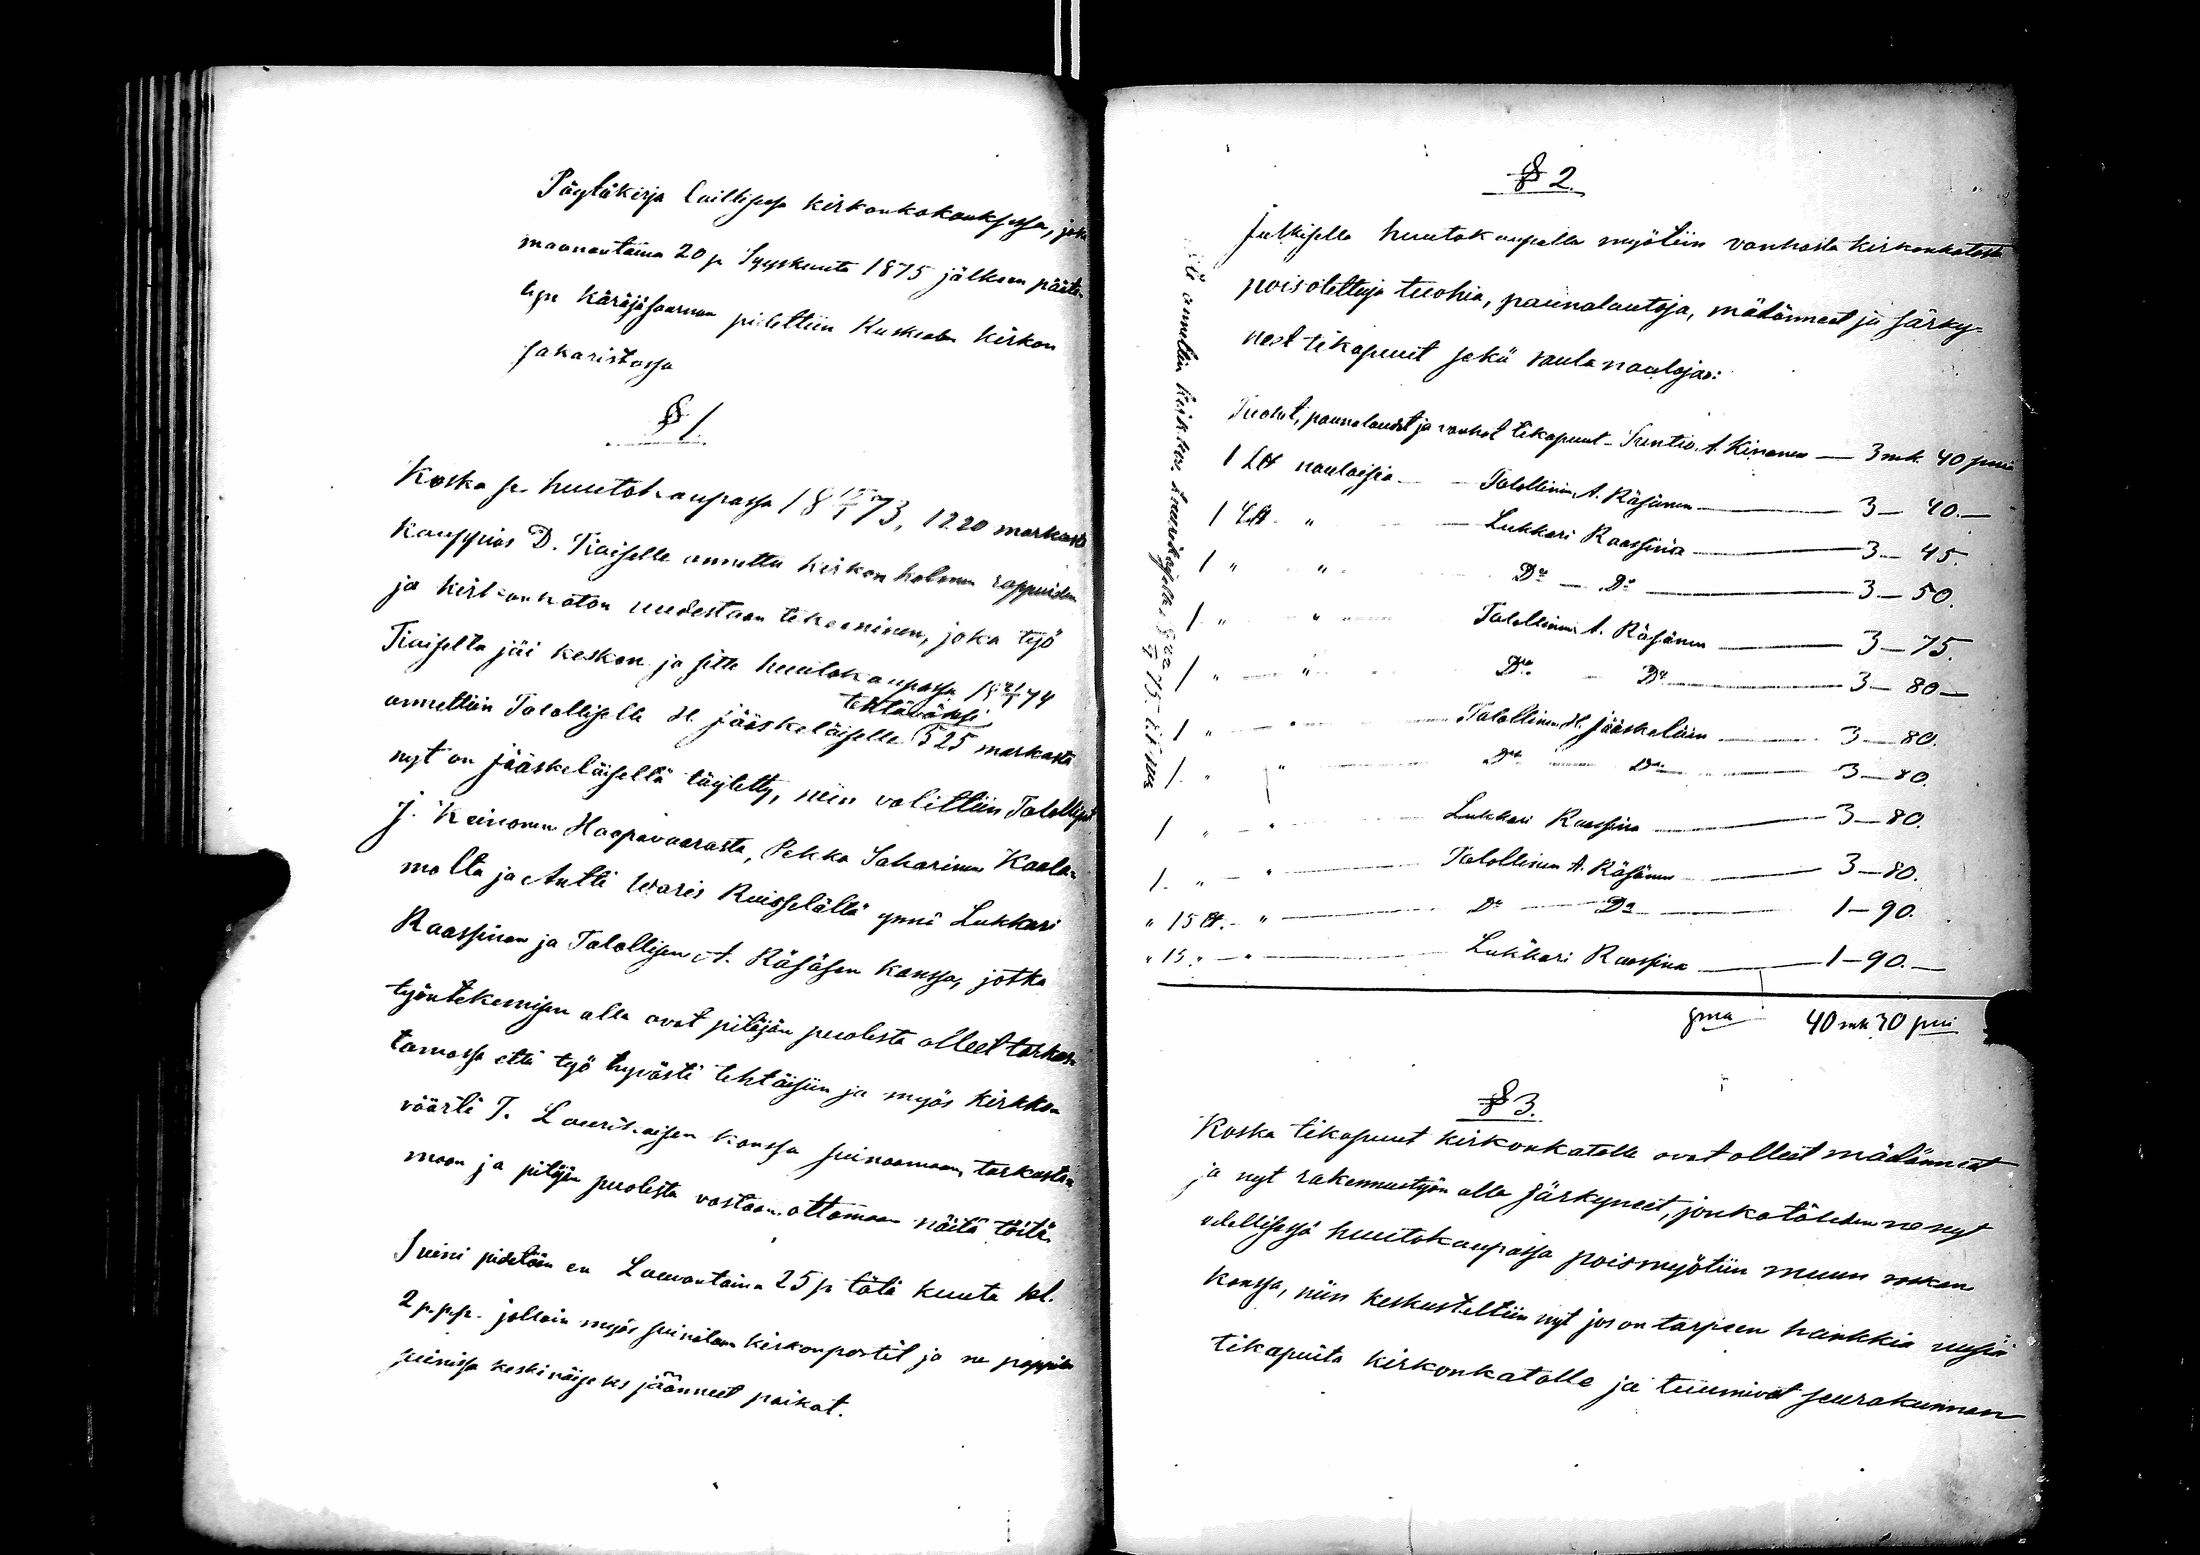 Pöytäkirja laillisessa kirkonkokouksessa, joka
maanantaina 20 p. Syyskuuta 1875 jälkeen pääte-
tyn käräjäsaarnan pidettiin Ruskealan kirkon
sakaristossa
§ 1
Koska se huutokaupassa 1873, 1220 markasta
kauppias D. Tiaiselle annettu kirkon kolmen rappuiden
ja kirkonkaton uudestaan tekeminen, joka työ
Tiaiselta jäi kesken ja sitte huutokaupassa 1874
annettiin Talolliselle H Jääskeläiselle tehtäväksi 525 markasta
nyt on Jääskeläiseltä täytetty, niin valittiin Talolliset
J. Keinonen Haapavaarasta, Pekka Saharinen Kaala-
molta ja Antti Waris Ruisselältä ynnä Lukkari
Raassinan ja Talollisen A. Räsäsen kanssa, jotka
työntekemisen alla ovat pitäjän puolesta olleet tarkas-
tamassa että työ hyvästi tehtäisiin ja myös kirkko-
väärti T. Laurikaisen kanssa syinäämään, tarkasta-
maan ja pitäjän puolesta vastaan ottamaan näitä töitä.
Syini pidetään en Lauvantaina 25 p. tätä kuuta kl.
2 p.p.p. jolloin myös syinätään kirkonportit ja ne pappilan
syinissä keskinäiseks jäänneet paikat.
§ 2.
Julkisella huutokaupalla myötiin vanhasta kirkonkatosta
poisotettuja tuohia, paunalautoja, mädänneet ja särky-
neet tikapuut sekä rauta nauloja:
Tuohet, paunalaudat ja vanhat tikapuut - Suntio A. Kinonen — 3 mk. 40 pniä
1 L℔ nauloisia — Talollinen A. Räsänen — 3 — 40.—
1 L℔ " — Lukkari Raassina — 3 — 45.
1 " " Do — Do — 3 — 50.
1 " " Talollinen A. Räsänen — 3 — 75.
1 " " Do - Do — 3 — 80 —
1 " " Talollinen H. Jääskeläin — 3 — 80.
1 " " Do — Do — 3 — 80.
1 " " Lukkari Raassina — 3 — 80.
1 " " Talollinen A. Räsänen — 3 — 80.
" 15 ℔. " — Do — Do — 1 — 90.
" 15 " " — Lukkari Raassina — 1 — 90.—
40 mk 70 pni
annettiin
§ 3.
Koska tikapuut kirkonkatolle ovat olleet mädänneet
ja nyt rakennustyön alla särkyneet, jonkatähden ne nyt
edellisessä huutokaupassa poismyötiin muun roskan
kanssa, niin keskusteltiin nyt jos on tarpeen hankkia uusia
tikapuita kirkonkatolle ja tuumivat seurakunnan